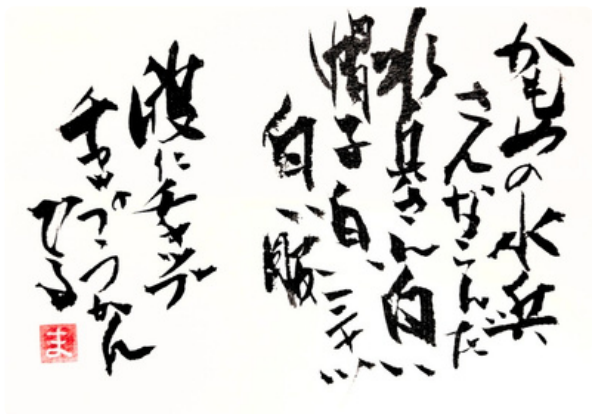 かもめの水兵
さんならんだ
水兵さん白い
帽子白いシャツ
白い服
波にチャップ
チャップうかん
でる
ま